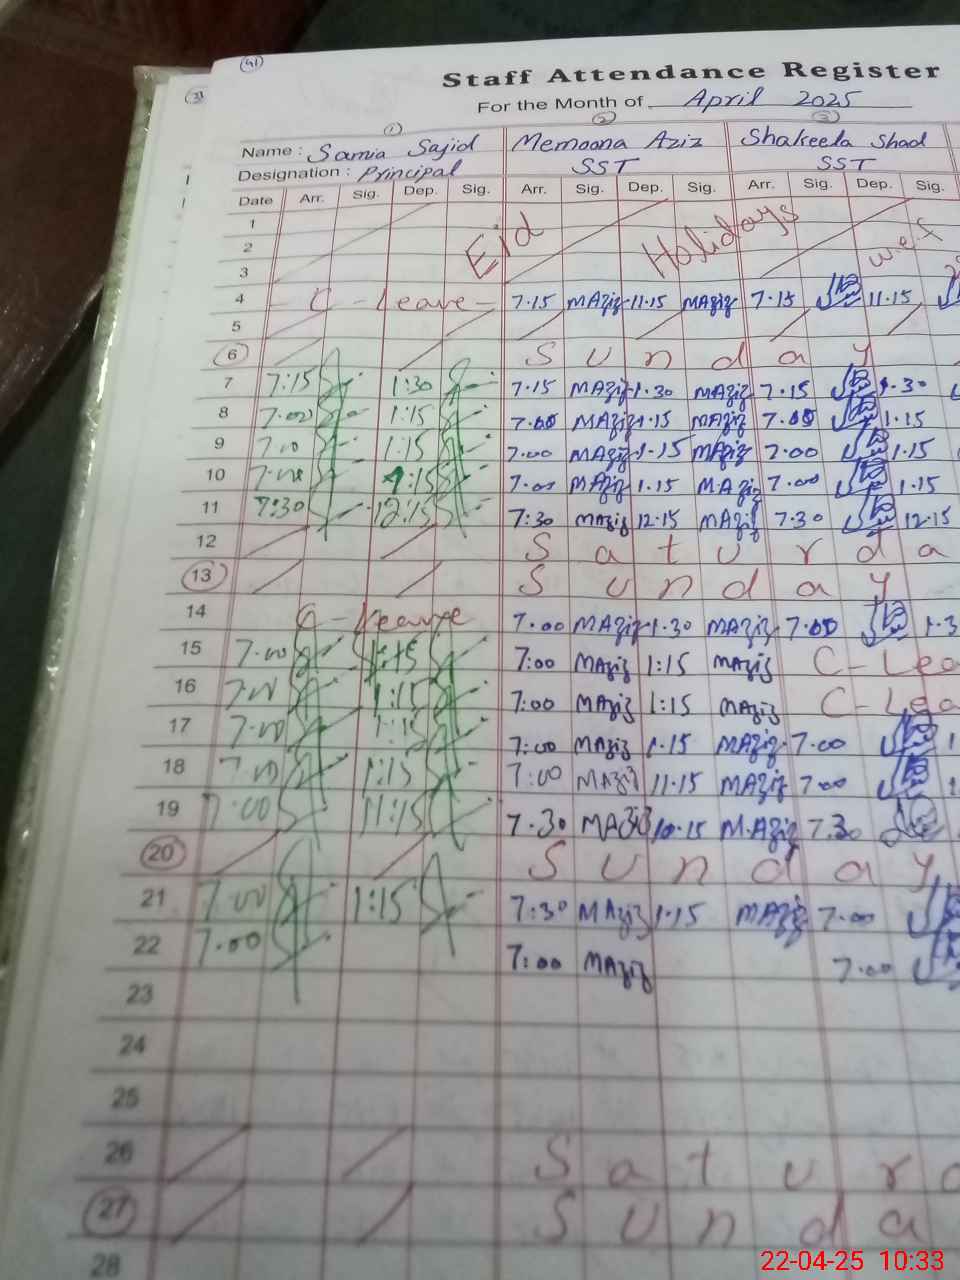 41
31
Staff Attendance Register
For the Month of April 2025
1 2 3
Name : Samia Sajid Memoona Aziz Shakeela Shad
Designation : Principal SST SST
Date Arr. Sig. Dep. Sig. Arr. Sig. Dep. Sig. Arr. Sig. Dep. Sig.
1
2 Eid Holidays w.e.f
3
4 C - Leave - 7.15 MAziz 11.15 MAziz 7.15 11.15
5
6 Sunday
7 7:15 1:30 7.15 MAziz 1.30 MAziz 7.15 1.30
8 7.00 1:15 7.00 MAziz 1.15 MAziz 7.00 1.15
9 7.00 1:15 7.00 MAziz 1.15 MAziz 7.00 1.15
10 7.00 1:15 7.00 MAziz 1.15 MAziz 7.00 1.15
11 7:30 12:15 7:30 MAziz 12.15 MAziz 7.30 12.15
12 Saturda
13 Sunday
14 C - Leave 7.00 MAziz 1.30 MAziz 7.00 1.3
15 7.00 1:15 7:00 MAziz 1:15 MAziz C-Lea
16 7.00 1:15 7:00 MAziz 1:15 MAziz C-Lea
17 7.00 1:15 7:00 MAziz 1.15 MAziz 7.00 1
18 7.00 1:15 7:00 MAziz 11.15 MAziz 7.00
19 7.00 11:15 7.30 MAziz 10.15 M.Aziz 7.30
20 Sunday
21 7.00 1:15 7:30 MAziz 1.15 MAziz 7.00
22 7.00 7:00 MAziz 7.00
23
24
25
26 Satur
27 Sunda
28
22-04-25 10:33